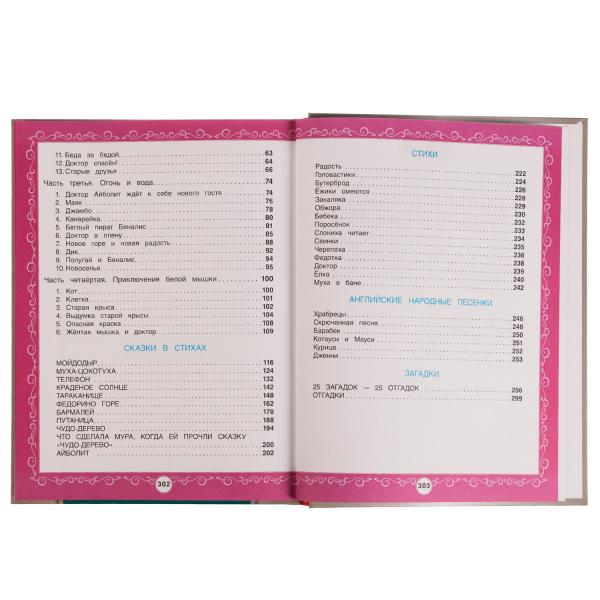 11. Беда за бедой 63
12. Доктор спасён! 64
13. Старые друзья 66
Часть третья. Огонь и вода 74
1. Доктор Айболит ждёт к себе нового гостя 74
2. Маяк 76
3. Джамбо 78
4. Канарейка 80
5. Беглый пират Беналис 81
6. Доктор в плену 85
7. Новое горе и новая радость 88
8. Дик 92
9. Попугай и Беналис 94
10. Новоселье 95
Часть четвёртая. Приключения белой мышки 100
1. Кот 100
2. Клетка 101
3. Старая крыса 102
4. Выдумка старой крысы 104
5. Опасная краска 108
6. Жёлтая мышка и доктор 109
СКАЗКИ В СТИХАХ
МОЙДОДЫР 116
МУХА-ЦОКОТУХА 124
ТЕЛЕФОН 132
КРАДЕНОЕ СОЛНЦЕ 142
ТАРАКАНИЩЕ 148
ФЕДОРИНО ГОРЕ 162
БАРМАЛЕЙ 178
ПУТАНИЦА 188
ЧУДО-ДЕРЕВО 194
ЧТО СДЕЛАЛА МУРА, КОГДА ЕЙ ПРОЧЛИ СКАЗКУ
«ЧУДО-ДЕРЕВО» 200
АЙБОЛИТ 202
302
СТИХИ
Радость 222
Головастики 224
Бутерброд 226
Ёжики смеются 228
Закаляка 229
Обжора 230
Бебека 232
Поросёнок 233
Слониха читает 234
Свинки 235
Черепаха 236
Федотка 238
Доктор 239
Ёлка 240
Муха в бане 242
АНГЛИЙСКИЕ НАРОДНЫЕ ПЕСЕНКИ
Храбрецы 246
Скрюченная песня 248
Барабек 250
Котауси и Мауси 251
Курица 252
Дженни 253
ЗАГАДКИ
25 ЗАГАДОК — 25 ОТГАДОК 256
ОТГАДКИ 299
303